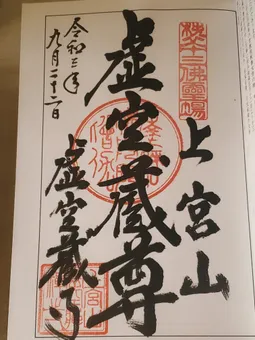 秩父十三佛靈場
上宮山
虚空蔵尊
虚空蔵寺
令和三年
九月二十二日